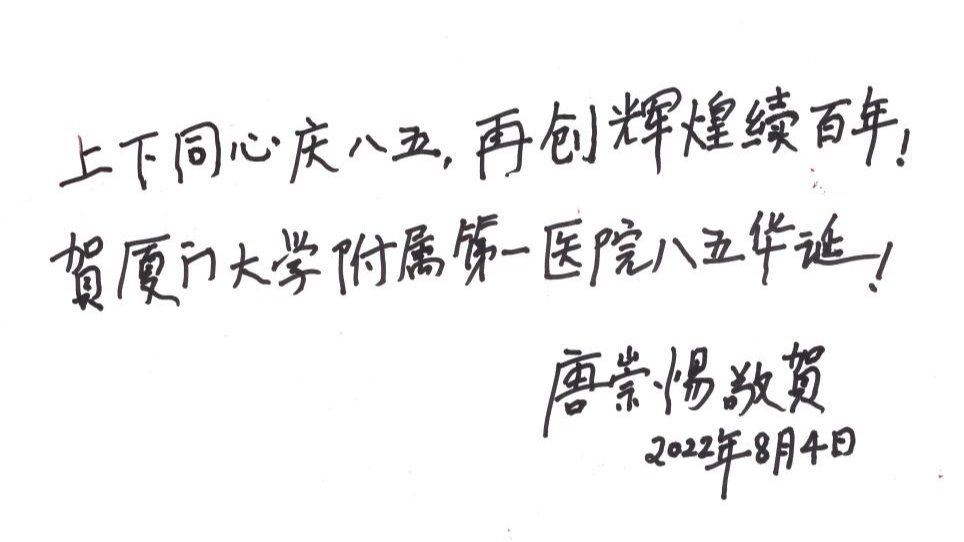 上下同心庆八五,再创辉煌续百年!
賀厦门大学附属第一医院八五华诞!
唐崇惕敬賀
2022年8月4日